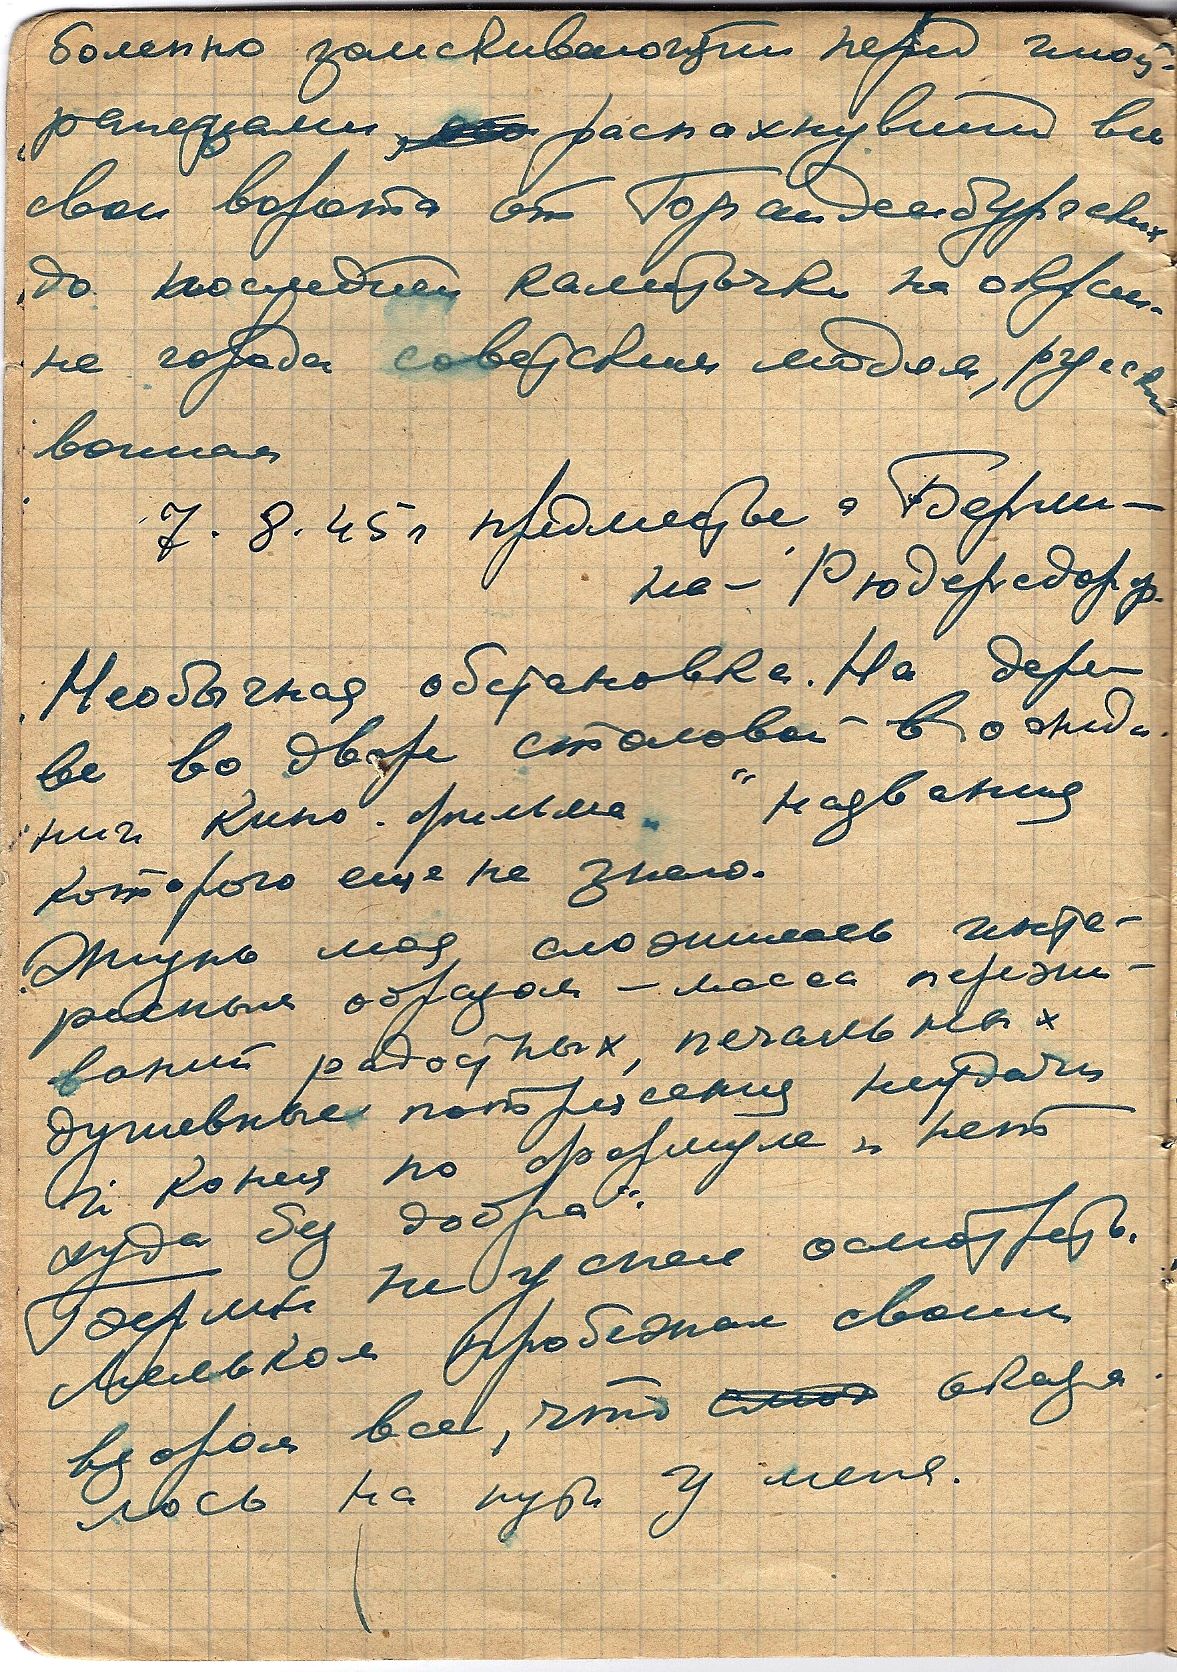 боленно заискивающим перед
распахнувший все
свои ворота от Бранденбургских
до последней калиточки на окраи-
не города советским людям, русским
воинам
7.8.45 г предместье Берли-
на - Рюдерсдорф.
Необычная обстановка. На дере-
ве во дворе столовой в ожида-
нии кино-фильма названия
которого еще не знаю.
Жизнь моя сложилась инте-
ресным образом - масса пережи-
ваний радостных, печальных
душевные потрясения неудачи
и конец по формуле „нет
худа без добра".
Берлин не успел осмотреть.
Мельком пробежал своим
взором все, что оказа-
лось на пути у меня.